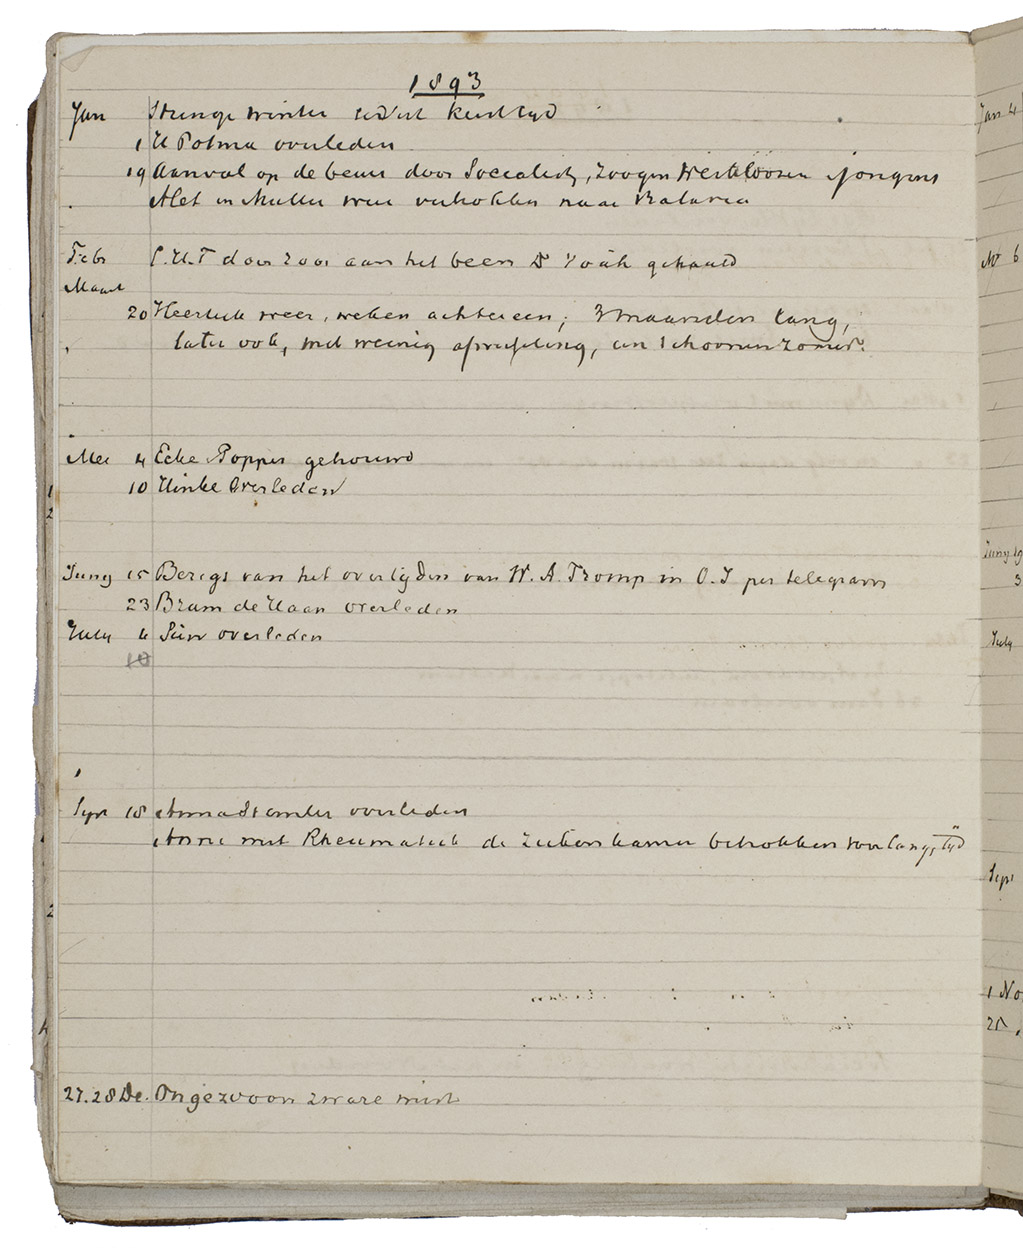 1893
Jan Strenge winter sedert kersttyd
1 H Potma overleden
19 Aanval op de beurs door Socialisten, zoogen Werkloozen & jongens
Alet en Muller weer vertrokken naar Batavia
Febr C.H.T door zoor aan het been
Maart
20 Heerlyk weer, weken achtereen; 3 maanden lang,
later ook, met weinig afwisseling, een schoonen zomer.
Mei 4 Ecke Poppes getrouwd
10 Hinke Overleden
Juny 15 Berigt van het overlijden van W. A. Tromp in O. I per telegram
23 Bram de Haan overleden
July 4 overleden
10
Sept 18 overleden
Anna met Rheumatiek de ziekenkamer betrokken voor langen tijd
27.28 De. Ongewoon zware mist
Jan 4
No 6
Juny 19
3
July
Sept
1 No
25